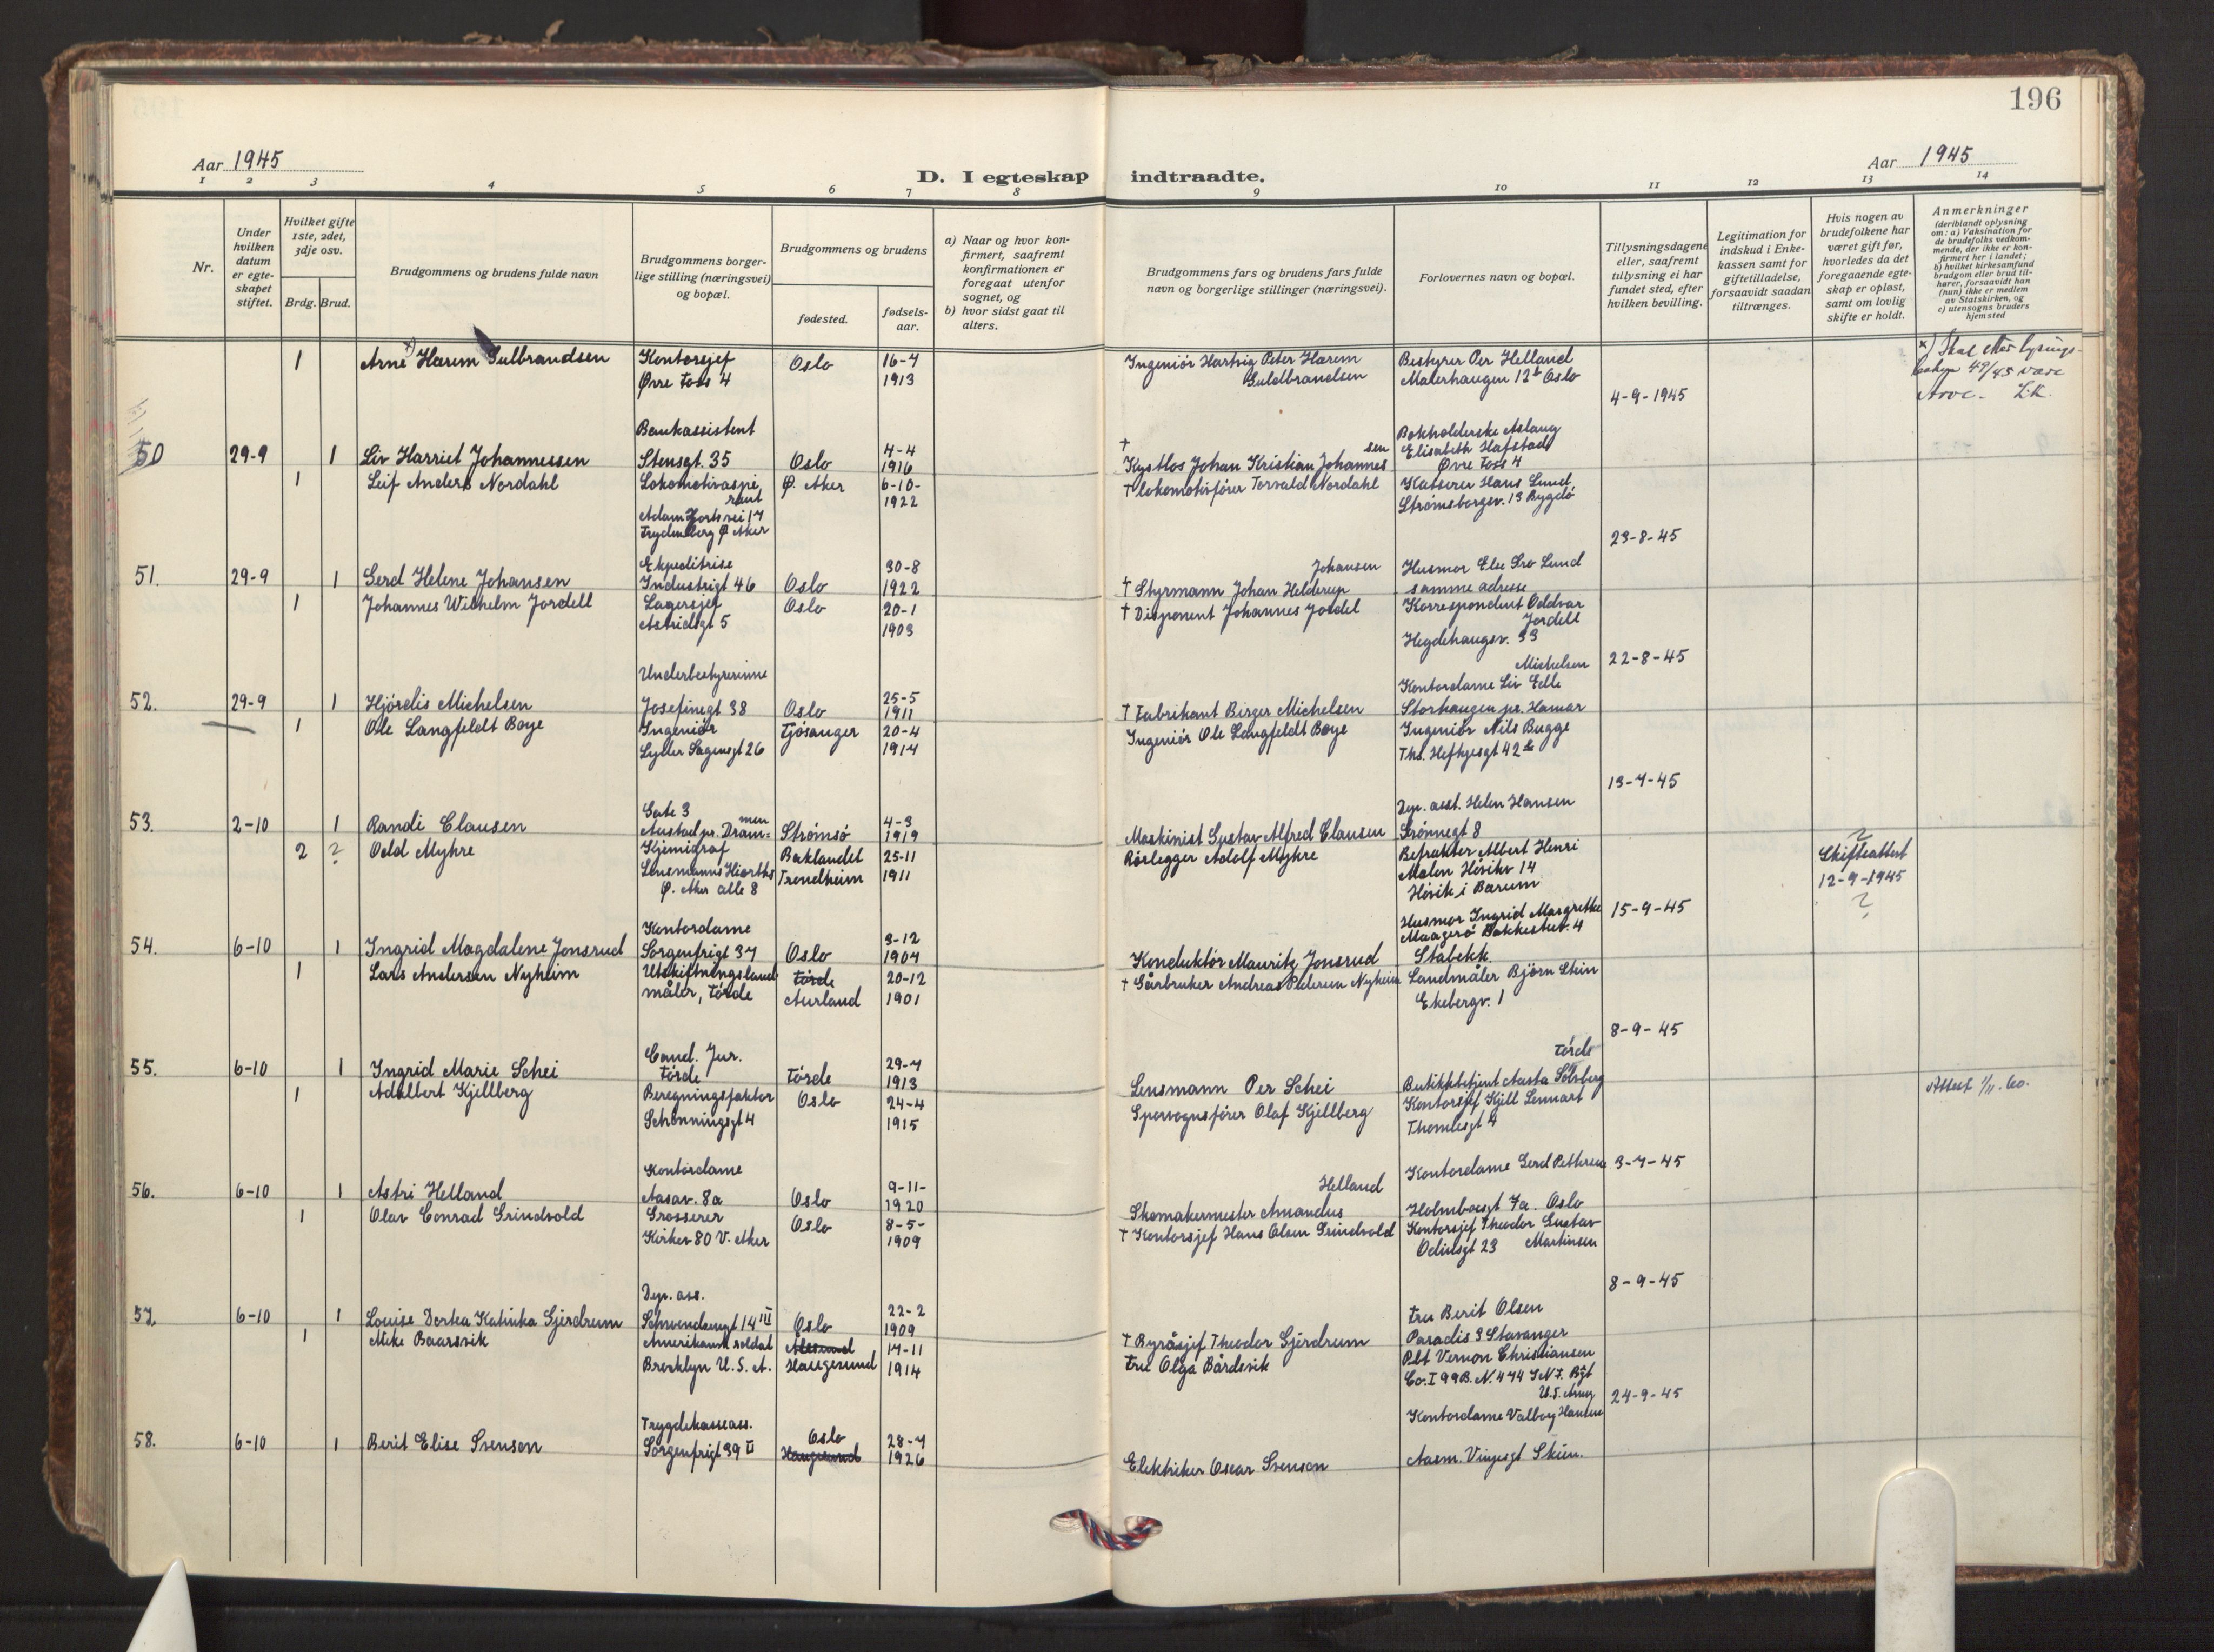 196
Aar 1945
D. I egteskap indtraadte.
Aar 1945
1 2 3 4 5 6 7 8 9 10 11 12 13 14
Nr.
Under
hvilken
datum
er egte-
skapet
stiftet.
Hvilket gifte
1ste, 2det,
3dje osv.
Brdg. Brud.
Brudgommens og brudens fulde navn
Brudgommens borger-
lige stilling (næringsvei)
og bopæl.
Brudgommens og brudens
fødested.
fødsels-
aar.
a) Naar og hvor kon-
firmert, saafremt
konfirmationen er
foregaat utenfor
sognet, og
b) hvor sidst gaat til
alters.
Brudgommens fars og brudens fars fulde
navn og borgerlige stillinger (næringsvei).
Forlovernes navn og bopæl.
Tillysningsdagene
eller, saafremt
tillysning ei har
fundet sted, efter
hvilken bevilling.
Legitimation for
indskud i Enke-
kassen samt for
giftetilladelse,
forsaavidt saadan
tiltrænges.
Hvis nogen av
brudefolkene har
været gift før,
hvorledes da det
foregaaende egte-
skap er opløst,
samt om lovlig
skifte er holdt.
Anmerkninger
(deriblandt oplysning
om: a) Vaksination for
de brudefolks vedkom-
mende, der ikke er kon-
firmert her i landet;
b) hvilket kirkesamfund
brudgom eller brud til-
hører, forsaavidt han
(hun) ikke er medlem
av Statskirken, og
c) utensogns bruders
hjemsted
1 Arne x) Harem Gulbrandsen
Kontorsjef
Øvre Foss 4
Oslo
16-7
1913
Ingeniør Hartvig Peter Harem
Guldbrandsen
Bestyrer Per Helland
Malerhaugen 12b Oslo
4-9-1945
x) Skal etter lysings-
49/45 være
Arve.
50 29-9 1 Liv Harriet Johannessen
Bankassistent
Stensgt. 35
Oslo
4-4
1916
† Kystlos Johan Kristian Johannes
sen
Bokholderske Aslaug
Elisabeth Hafstad
Øvre Foss 4
1 Leif Anders Nordahl
Lokomotivaspi
rant
Adam Hjorts vei 17
Frydenberg Ø. Aker
Ø. Aker
6-10-
1922
† Lokomotivfører Torvald Nordahl
Kasserer Hans Lund
Strømsborgv. 13 Bygdø
23-8-45
51. 29-9 1 Gerd Helene Johansen
Ekpeditrise
Industrigt 46
Oslo
30-8
1922
Johansen
† Styrmann Johan Helderup
Husmor Else Lund
samme adresse
1 Johannes Wilhelm Jordell
Lagersjef
Astridsgt 5
Oslo
20-1
1903
† Disponent Johannes Jordel
Korrespondent Oddvar
Jordell
Hegdehaugsv. 33
22-8-45
52. 29-9 1 Hjørdis Michelsen
Underbestyrerinne
Josefinegt 38
Oslo
25-5
1911
† Fabrikant Birger Michelsen
Michelsen
Kontordame Liv Edle
Storhaugen pr. Hamar
1 Ole Langfeldt Boye
Ingeniør
Lyder Sagensgt 26
Fjøsanger
20-4
1914
Ingeniør Ole Langfeldt Boye
Ingeniør Nils Bugge
Ths. Heftyesgt 42
13-7-45
53. 2-10 1 Randi Clausen
Gate 3
Austad pr. Dram=
men
Strømsø
4-3
1919
Maskinist Gustav Alfred Clausen
Dep. asst. Helen Hansen
Grønnegt 8
2 ? Odd Myhre
Kjemigraf
Lensmanns Hiorths
Ø. Aker alle 8
Baklandet
Trondheim
25-11
1911
Rørlegger Adolf Myhre
Befrakter Albert Henri
Malen Høvikv 14
Høvik i Bærum
15-9-45
?
Skifteattest
12-9-1945
?
54. 6-10 1 Ingrid Magdalene Jonsrud
Kontordame
Sorgenfrigt 37
Oslo
3-12
1904
Konduktør Mauritz Jonsrud
Husmor Ingrid Margrethe
Maagerø Bakkestut. 4
Stabekk
1 Lars Andersen Nyheim
Utskiftningsland
måler, Førde
Førde
Aurland
20-12
1901
† Gårbruker Andreas Pedersen Nyheim
Landmåler Bjørn Stein
Ekebergv. 1
8-9-45
55. 6-10 1 Ingrid Marie Schei
Cand. Jur.
Førde
Førde
29-7
1913
Lensmann Per Schei
Førde
Butikkbetjent Aasta Solsberg
1 Adelbert Kjellberg
Beregningsfaktor
Schønningsgt 4
Oslo
24-4
1915
Sporvognsfører Olaf Kjellberg
Kontorsjef Kjell Lennart
Thomlesgt 4
3-7-45
Attest 1/11. 60.
56. 6-10 1 Astri Helland
Kontordame
Aasav. 8a
Oslo
9-11-
1920
Helland
Skomakermester Amandus
Kontordame Gerd Pettersen
Holmboesgt 7a. Oslo
1 Olav Conrad Grindvold
Grosserer
Kirkev 80 V. Aker
Oslo
8-5-
1909
† Kontorsjef Hans Olsen Grindvold
Kontorsjef Theodor Gustav
Odinsgt 23 Martinsen
8-9-45
57. 6-10 1 Louise Dortea Katinka Gjerdrum
Dep. ass.
Schwensensgt 14 III
Oslo
22-2
1909
† Byråsjef Theodor Gjerdrum
Fru Berit Olsen
Paradis 3 Stavanger
1 Mike Baarsvik
Amerikansk soldat
Brooklyn U.S.A.
Ålesund
Haugesund
17-11
1914
Fru Olga Bårdsvik
Pvt Vernon Christiansen
Co. I 99 B. N. 474 INF. Rgt
U.S. Army
24-9-45
58. 6-10 1 Berit Elise Svenson
Trygdekasseass.
Sorgenfrigt 39 II
Oslo
Haugesund
28-7
1926
Elektriker Oscar Svenson
Kontordame Valborg Hansen
Aasm. Vinjesgt Skien.